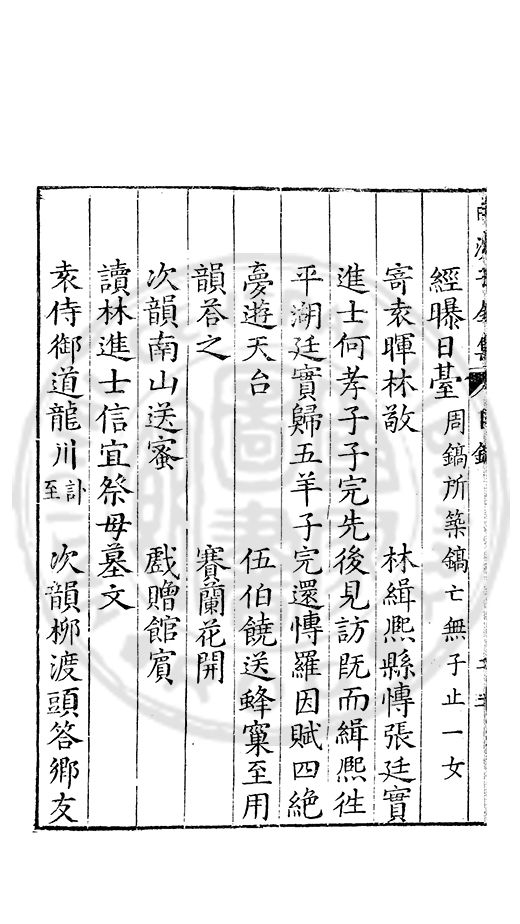 經曝日臺周鎬所築鎬亡無子止一女
寄袁暉林敬　林緝熙縣博張廷實
進士何孝子子完先後見訪既而緝熙徃
平湖廷實歸五羊子完還博羅因賦四絶
夢遊天台　伍伯饒送蜂窠至用
韻荅之　賽蘭花開
次韻南山送蜜　戲贈館賓
讀林進士信宜祭母墓文
袁侍御道龍川訃至　次韻柳渡頭答鄉友